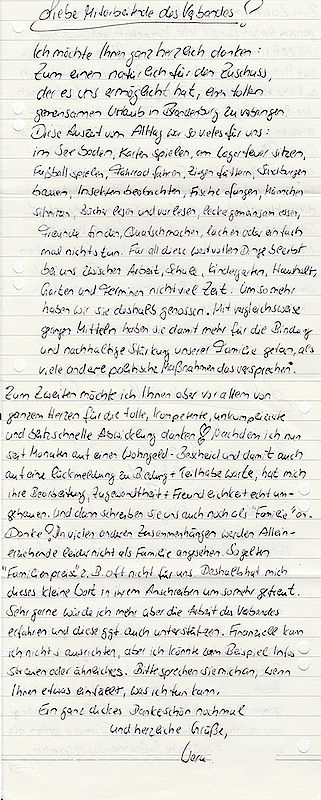 Liebe Mitarbeitende des Verbandes!
Ich möchte Ihnen ganz herzlich danken:
Zum einen natürlich für den Zuschuss,
der es uns ermöglicht hat, einen tollen
gemeinsamen Urlaub in Brandenburg zu verbringen.
Diese Auszeit vom Alltag war so vieles für uns:
im See baden, Karten spielen, am Lagerfeuer sitzen,
Fußball spielen, Fahrrad fahren, Ziegen füttern, Sandburgen
bauen, Insekten beobachten, Fische fangen, Männchen
schnitzen, Bücher lesen und vorlesen, lecker gemeinsam essen,
Freunde finden, Quatschmachen, lachen oder einfach
mal nichts tun. Für all diese wertvollen Dinge bleibt
bei uns zwischen Arbeit, Schule, Kindergarten, Haushalt,
Garten und Terminen nicht viel Zeit. Um so mehr
haben wir sie deshalb genossen. Mit vergleichsweise
geringen Mitteln haben sie damit mehr für die Bindung
und nachhaltige Stärkung unserer Familie getan, als
viele andere politische Maßnahmen das versprechen.
Zum Zweiten möchte ich Ihnen aber vor allem von
ganzem Herzen für die tolle, kompetente, unkomplizierte
und blitzschnelle Abwicklung danken! Nachdem ich nun
seit Monaten auf einen Wohngeld-Bescheid und damit auch
auf eine Rückmeldung zu Bildung + Teilhabe warte, hat mich
ihre Bearbeitung, Zugewandtheit + Freundlichkeit echt um-
gehauen. Und dann schreiben sie uns auch noch als "Familie" an.
Danke! In vielen anderen Zusammenhängen werden Allein-
erziehende leider nicht als Familie angesehen. So gelten
"Familienpreise" z.B. oft nicht für uns. Deshalb hat mich
dieses kleine Wort in ihrem Anschreiben um so mehr gefreut.
Sehr gerne würde ich mehr über die Arbeit des Verbandes
erfahren und diese ggf. auch unterstützen. Finanziell kann
ich nichts ausrichten, aber ich könnte zum Beispiel Infos
streuen oder ähnliches. Bitte sprechen sie mich an, wenn
Ihnen etwas einfällt, was ich tun kann.
Ein ganz dickes Dankeschön nochmal
und herzliche Grüße,